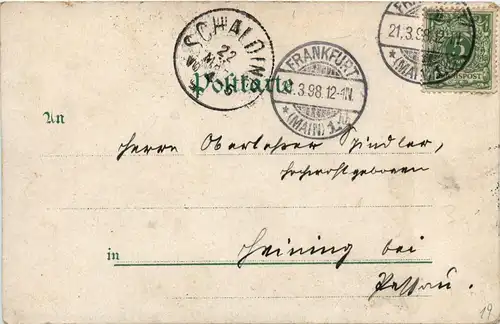 SCHALDING
22
MRZ
FRANKFURT
21.3.98.12-1N.
* (MAIN) 1. *
FRANKFURT
21.3.98.12-1N.
(MAIN)
5
Postkarte
An
Herrn Oberlehrer Spindler,
hochwohlgeboren
in
Heining bei
Passau.
19